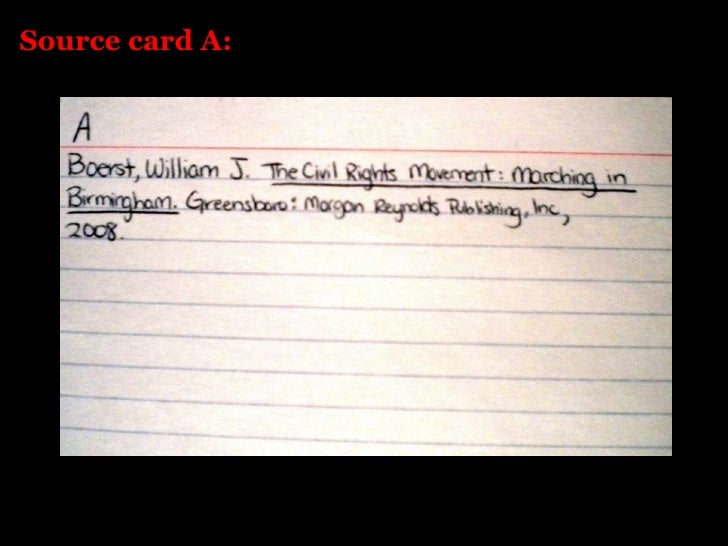 Source card A:
A
Boerst, William J. The Civil Rights Movement: Marching in
Birmingham. Greensboro: Morgan Reynolds Publishing, Inc,
2008.